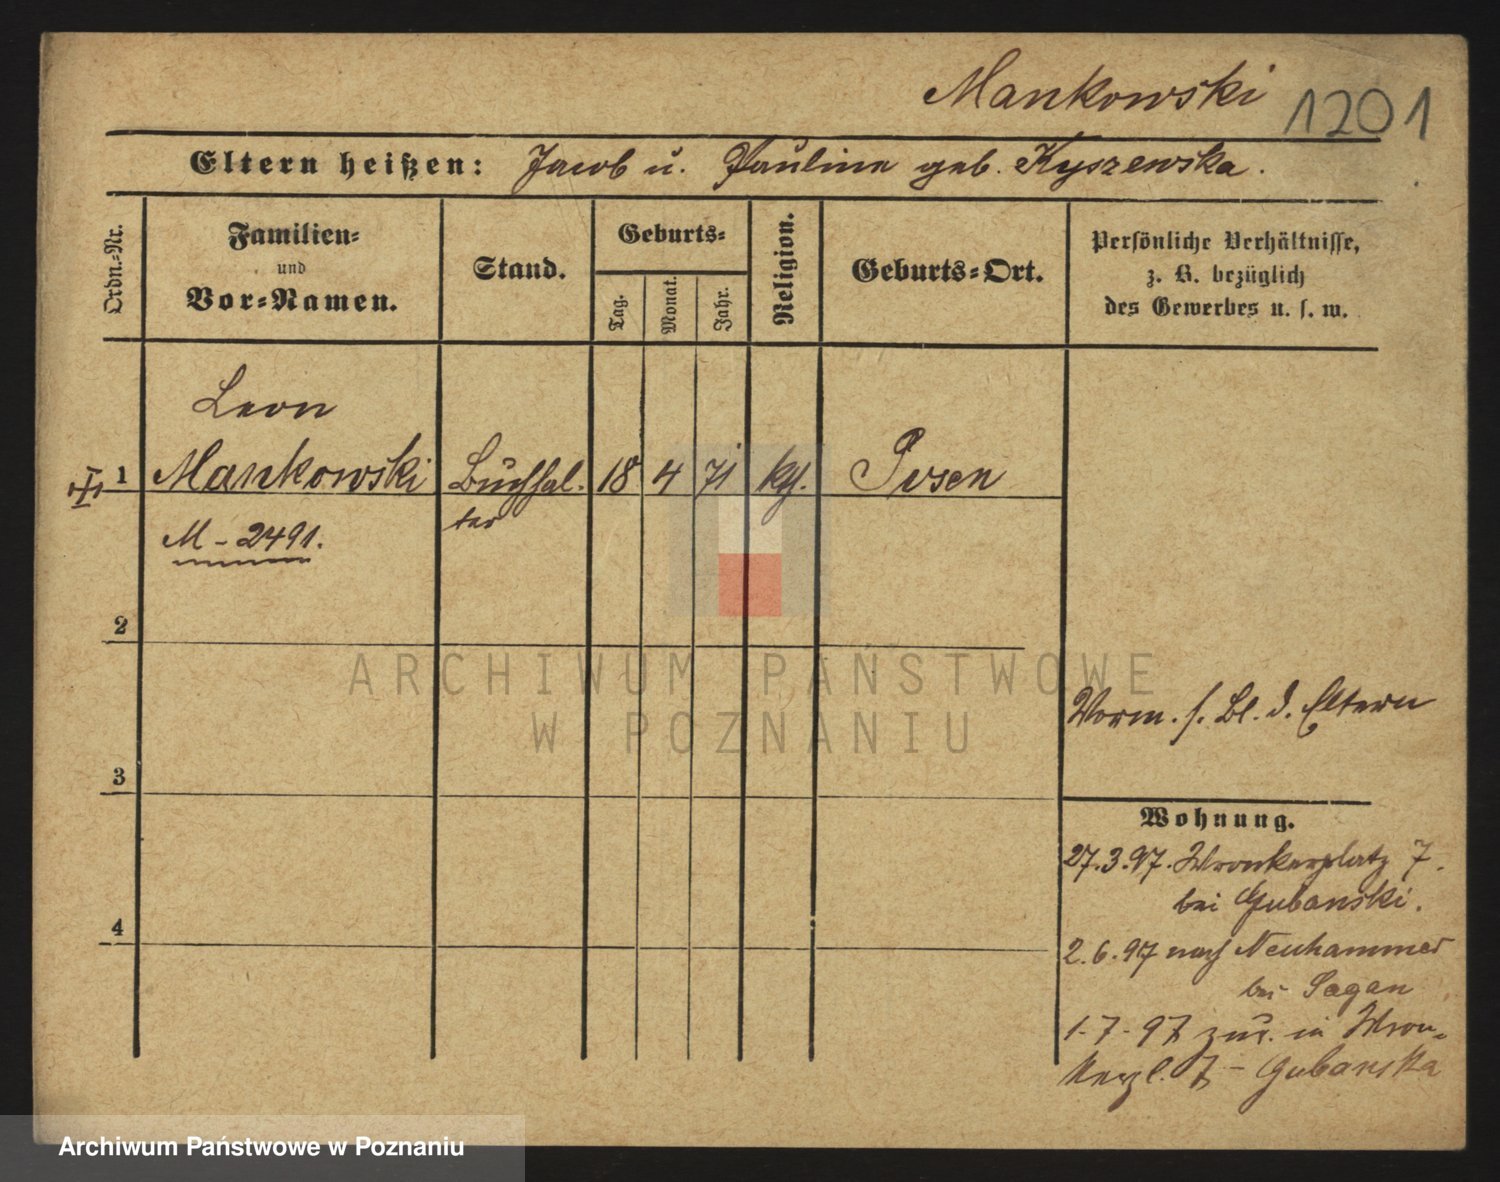 Mankowski
1201
Eltern heißen: Jacob u. Paulina geb. Kyszewska.
Ordn.-Nr.
Familien-
und
Vor-Namen.
Stand.
Geburts-
Tag.
Monat.
Jahr.
Religion.
Geburts-Ort.
Persönliche Verhältnisse,
z. B. bezüglich
des Gewerbes u. s. w.
Leon
1 Mankowski Buchhal- 18 4 71 kth. Posen
ter
M - 2491.
2
Vorm. s. Bl. d. Eltern
3
Wohnung.
27.3.97. Wronkerplatz 7.
bei Gubanski.
4
2.6.97 nach Neuhammer
bei Sagan
1-7-97 zur. in Wron-
kerpl. 7 - Gubanska
ARCHIWUM PAŃSTWOWE
W POZNANIU
Archiwum Państwowe w Poznaniu